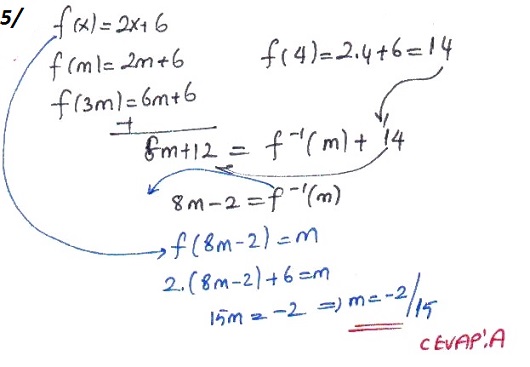 5/ f(x)=2x+6
f(m)=2m+6
f(4)=2.4+6=14
f(3m)=6m+6
+
8m+12 = f⁻¹(m)+14
8m-2=f⁻¹(m)
f(8m-2)=m
2.(8m-2)+6=m
15m=-2 ⇒ m=-2/15
CEVAP:A